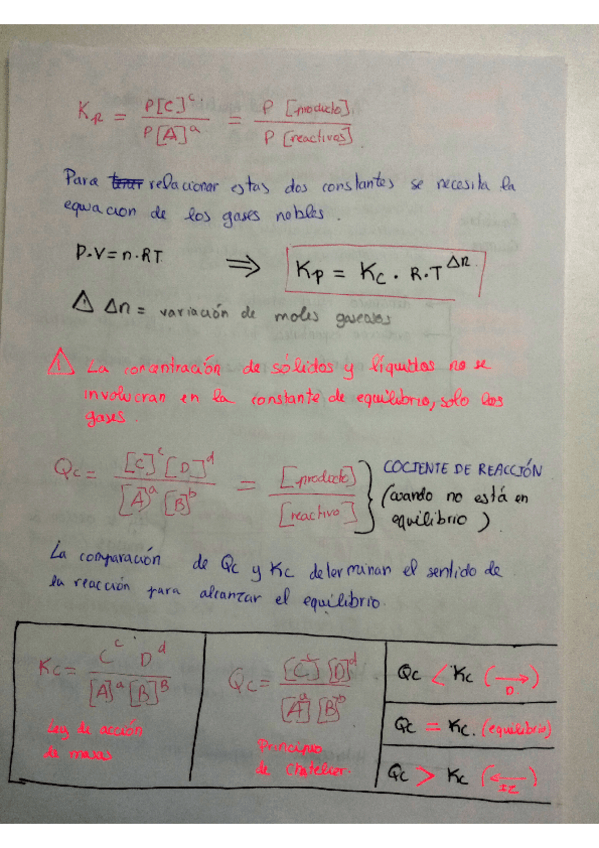 Kp = P[C]^c / P[A]^a = P [producto] / P [reactivos]
Para relacionar estas dos constantes se necesita la
equacion de los gases nobles.
P·V = n·RT ⇒ Kp = Kc · R·T^Δn
⚠ Δn = variación de moles gaseosos
⚠ La concentración de sólidos y líquidos no se
involucran en la constante de equilibrio, solo los
gases.
Qc = [C]^c [D]^d / [A]^a [B]^b = [producto] / [reactivo] } COCIENTE DE REACCIÓN
(cuando no está en
equilibrio).
La comparación de Qc y Kc determinan el sentido de
la reacción para alcanzar el equilibrio.
Kc = C^c D^d / [A]^a [B]^B
Ley de acción
de masas
Qc = [C]^c [D]^d / [A]^a [B]^b
Principio
de Chatelier.
Qc < Kc (→ D)
Qc = Kc. (equilibrio)
Qc > Kc (← IZ)